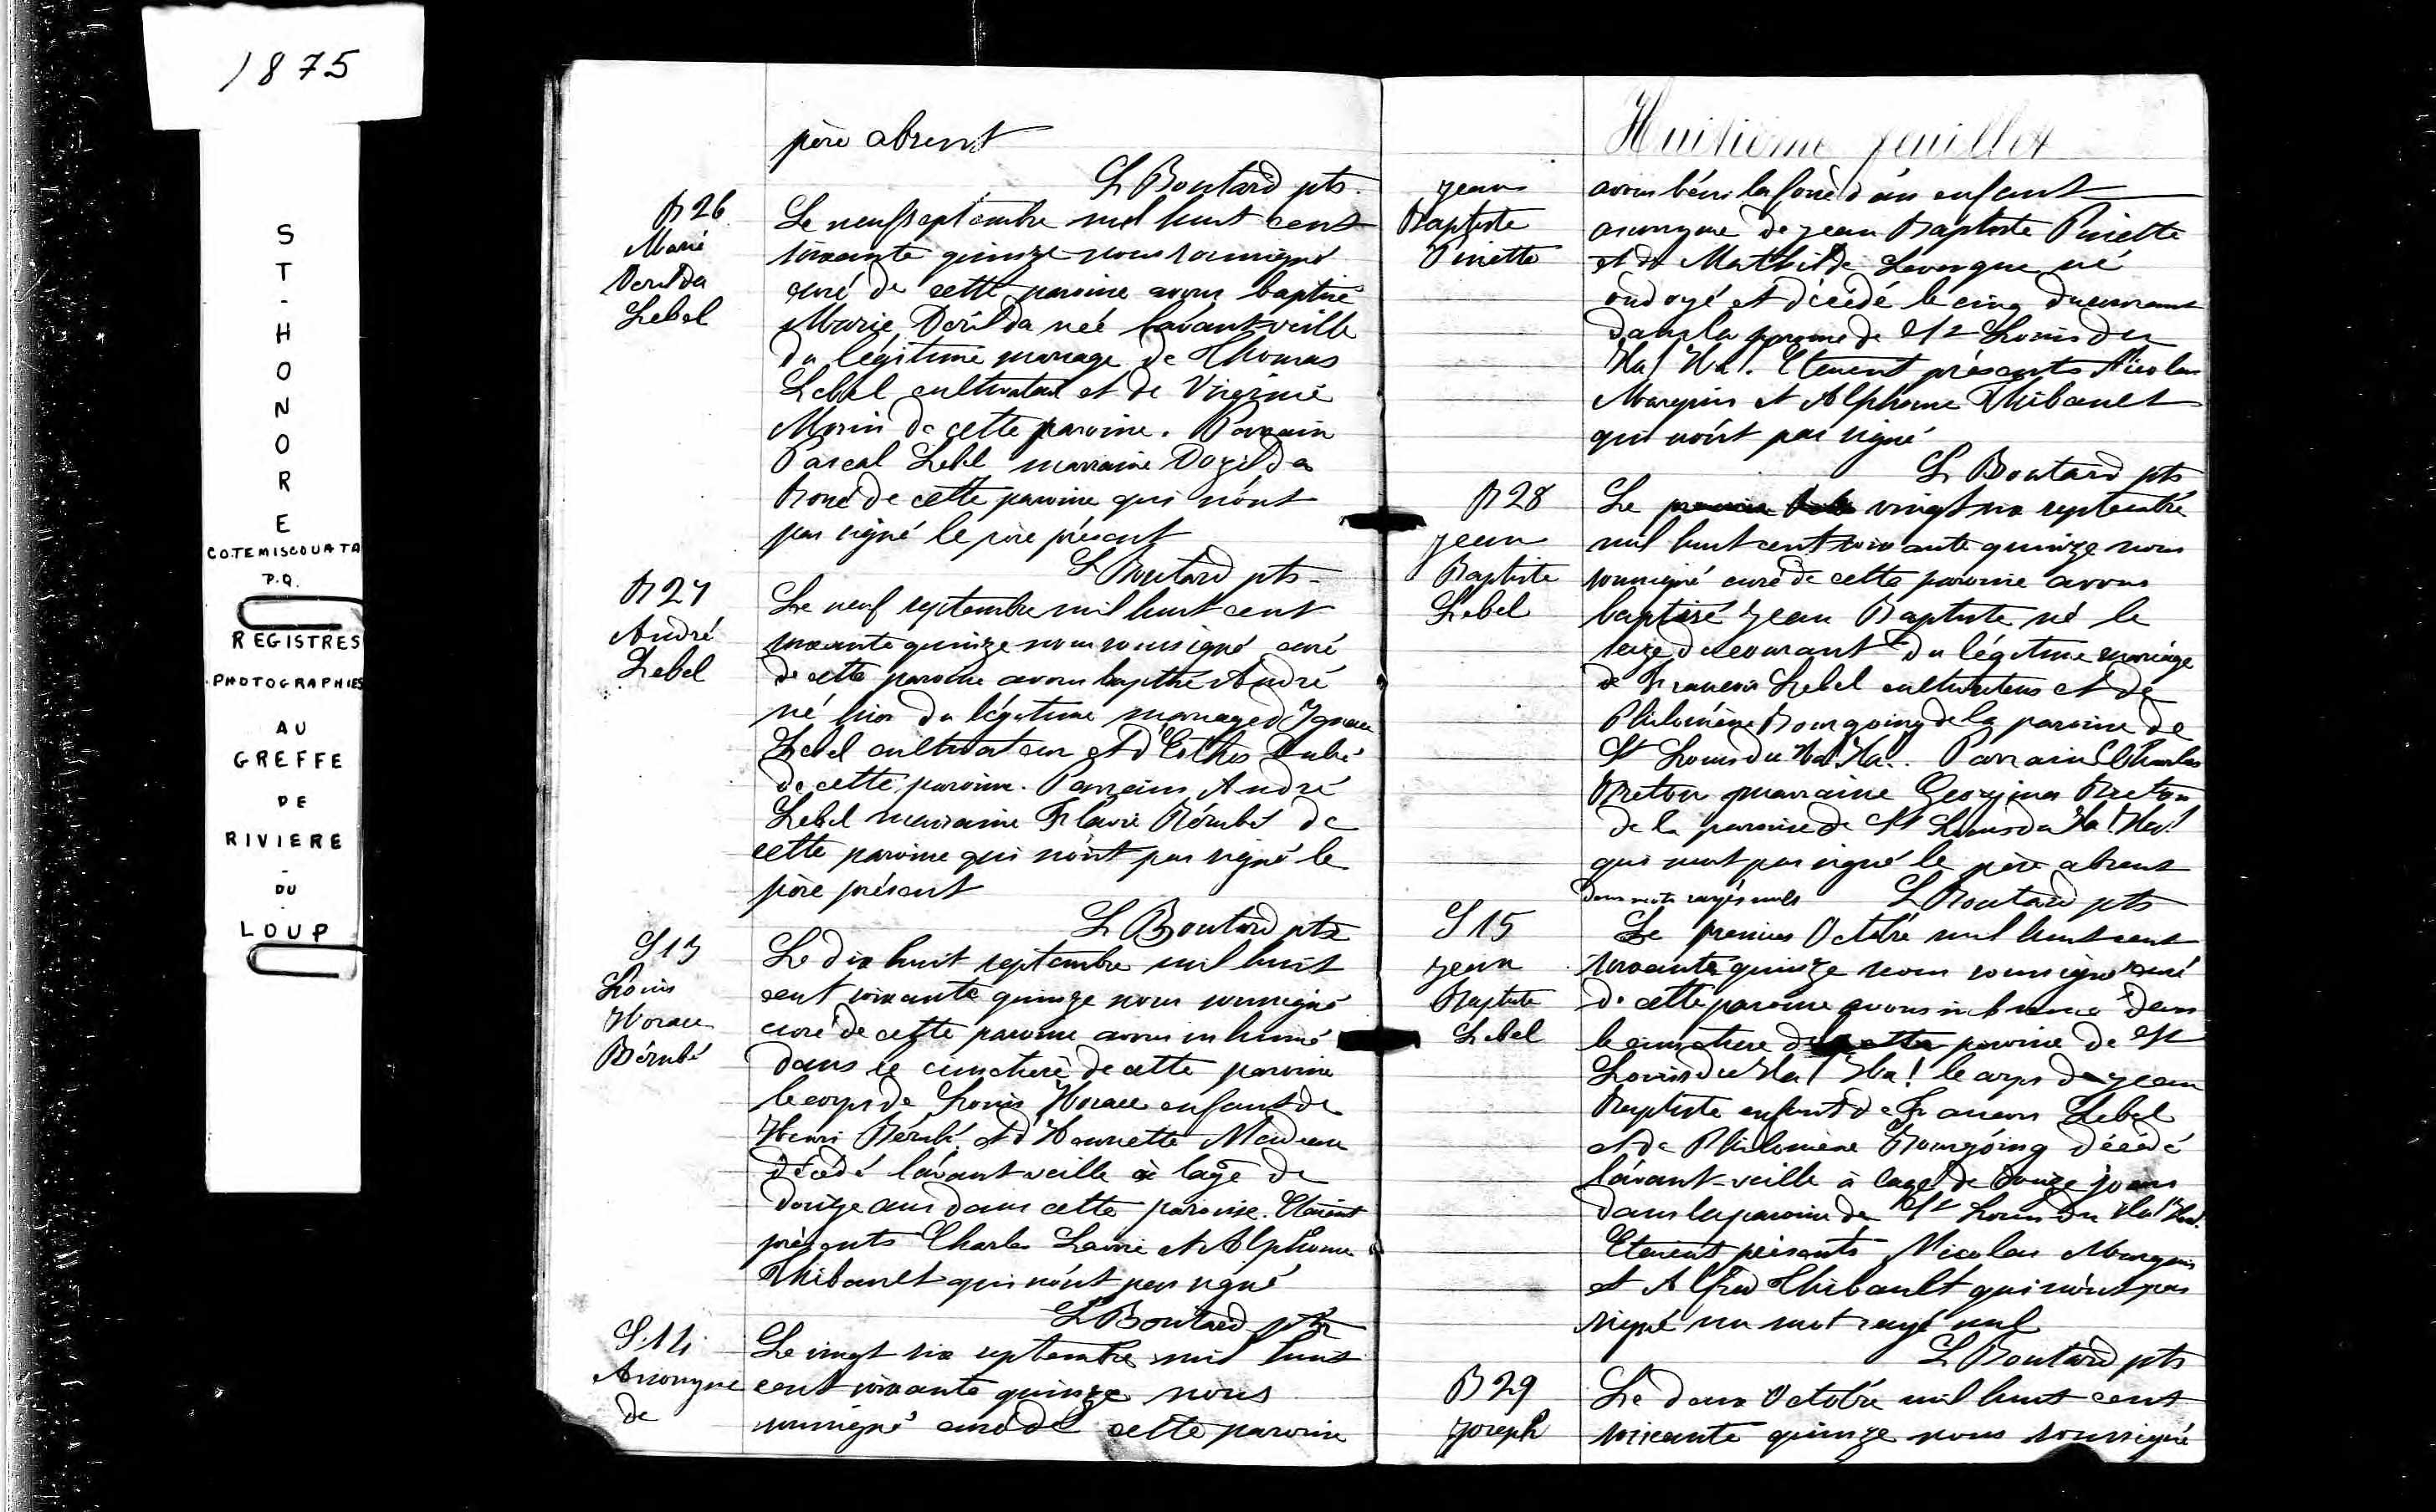 1875
S
T
-
H
O
N
O
R
E
CO.TEMISCOUATA
P.Q.
REGISTRES
PHOTOGRAPHIES
AU
GREFFE
DE
RIVIERE
-
DU
-
LOUP
père absent
L Boutard ptr
B 26
Marie
Lebel
Le neuf septembre mil huit cent
soixante quinze nous soussigné
curé de cette paroisse avons baptisé
Marie née l'avant-veille
du légitime mariage de Thomas
Lebel cultivateur et de Virginie
Morin de cette paroisse. Parrain
Pascal Lebel marraine Dozilda
de cette paroisse qui n'ont
pas signé le père présent
L Boutard ptr
B 27
André
Lebel
Le neuf septembre mil huit cent
soixante quinze nous soussigné curé
de cette paroisse avons baptisé André
né hier du légitime mariage d'Ignace
Lebel cultivateur et d'Esther Dubé
de cette paroisse. Parrain André
Lebel marraine Flavie Bérubé de
cette paroisse qui n'ont pas signé le
père présent
L Boutard ptr
S 13
Louis
Horace
Bérubé
Le dix huit septembre mil huit
cent soixante quinze nous soussigné
curé de cette paroisse avons inhumé
dans le cimetière de cette paroisse
le corps de Louis Horace enfant de
Henri Bérubé et d'Henriette Nadeau
décédé l'avant veille à l'age de
ans dans cette paroisse. Etaient
présents Charles et Alphonse
Thibault qui n'ont pas signé
L Boutard ptr
S.14
Anonyme
de
Le vingt six septembre mil huit
cent soixante quinze nous
soussigné curé de cette paroisse
Huitième feuillet
Jean
Baptiste
Pinette
avons béni la fosse d'un enfant
anonyme de Jean Baptiste Pinette
et de Mathilde Levesque né
ondoyé et décédé le cinq du courant
dans la paroisse de St Louis du
Ha! Ha!. Etaient présents Nicolas
Marquis et Alphonse Thibault
qui n'ont pas signé
L Boutard ptr
B 28
Jean
Baptiste
Lebel
Le vingt six septembre
mil huit cent soixante quinze nous
soussigné curé de cette paroisse avons
baptisé Jean Baptiste né le
seize du courant du légitime mariage
de Francois Lebel cultivateur et de
Philomène Bourgoing de la paroisse de
St Louis du Ha! Ha!. Parrain Charles
Breton marraine Georgina Breton
de la paroisse de St Louis du Ha! Ha!
qui n'ont pas signé le père absent
Deux mots rayés nuls L Boutard ptr
S 15
Jean
Baptiste
Lebel
Le premier Octobre mil huit cent
soixante quinze nous soussigné curé
de cette paroisse avons inhumé dans
le cimetiere de paroisse de St
Louis du Ha! Ha! le corps de Jean
Baptiste enfant de Francois Lebel
et de Philomène Bourgoing décédé
l'avant-veille à l'age de jours
dans la paroisse de St Louis du Ha! Ha!.
Etaient présents Nicolas Marquis
et Alfred Thibault qui n'ont pas
signé un mot rayé nul
L Boutard ptr
B 29
Joseph
Le deux Octobre mil huit cent
soixante quinze nous soussigné